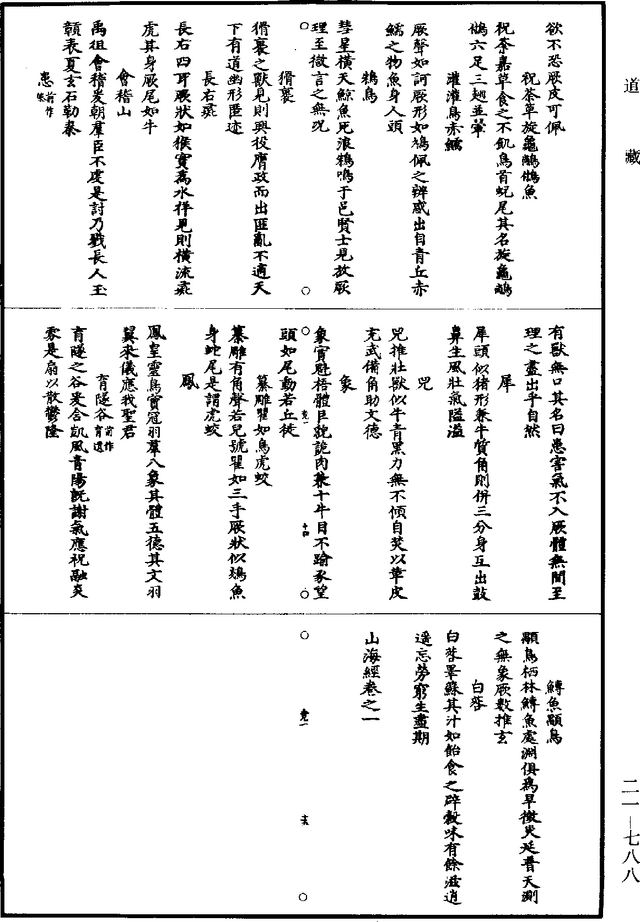 道藏
欲不恐厥皮可佩
祝荼草旋龜鵸鵌魚
祝荼嘉草食之不飢鳥首虺尾其名旋龜
鵂六足三翅並翬
灌灌鳥赤鱬
厥聲如訶厥形如鳩佩之辨惑出自青丘赤
鱬之物魚身人頭
鴸鳥
彗星橫天鯨魚死浪鴸鳴于邑賢士見放厥
理至微言之無況
猾褢
猾褢之獸見則興役膺政而出匪亂不適天
下有道幽形匿迹
長右彘
長右四耳厥狀如猴實為水祥見則橫流彘
虎其身厥尾如牛
會稽山
禹徂會稽爰朝羣臣不虔是討乃戮長人玉
贑表夏玄石勒秦
患前作𤝻
有獸無口其名曰患害氣不入厥體無間至
理之盡出乎自然
犀
犀頭似猪形兼牛質角則併三分身互出鼓
鼻生風壯氣隘溢
兕
兕推壯獸似牛青黑力無不傾自焚以革皮
充武備角助文德
象
象實魁梧體巨貌詭肉兼十牛目不踰豕望
頭如尾動若丘徙
纂雕瞿如鳥虎蛟
纂雕有角聲若兒號瞿如三手厥狀似鵁魚
身蛇尾是謂虎蛟
鳳
鳳皇靈鳥實冠羽羣八象其體五德其文羽
翼來儀應我聖君
育隧谷前作育遺
育隧之谷爰含凱風青陽既謝氣應祝融炎
雰是扇以散鬱隆
鱄魚顒鳥
顒鳥栖林鱄魚處淵俱為旱徵災延普天測
之無象厥數推玄
白䓘
白䓘睪蘇其汁如飴食之辟穀味有餘滋逍
遥忘勞窮生盡期
山海經卷之一
二一—七八八